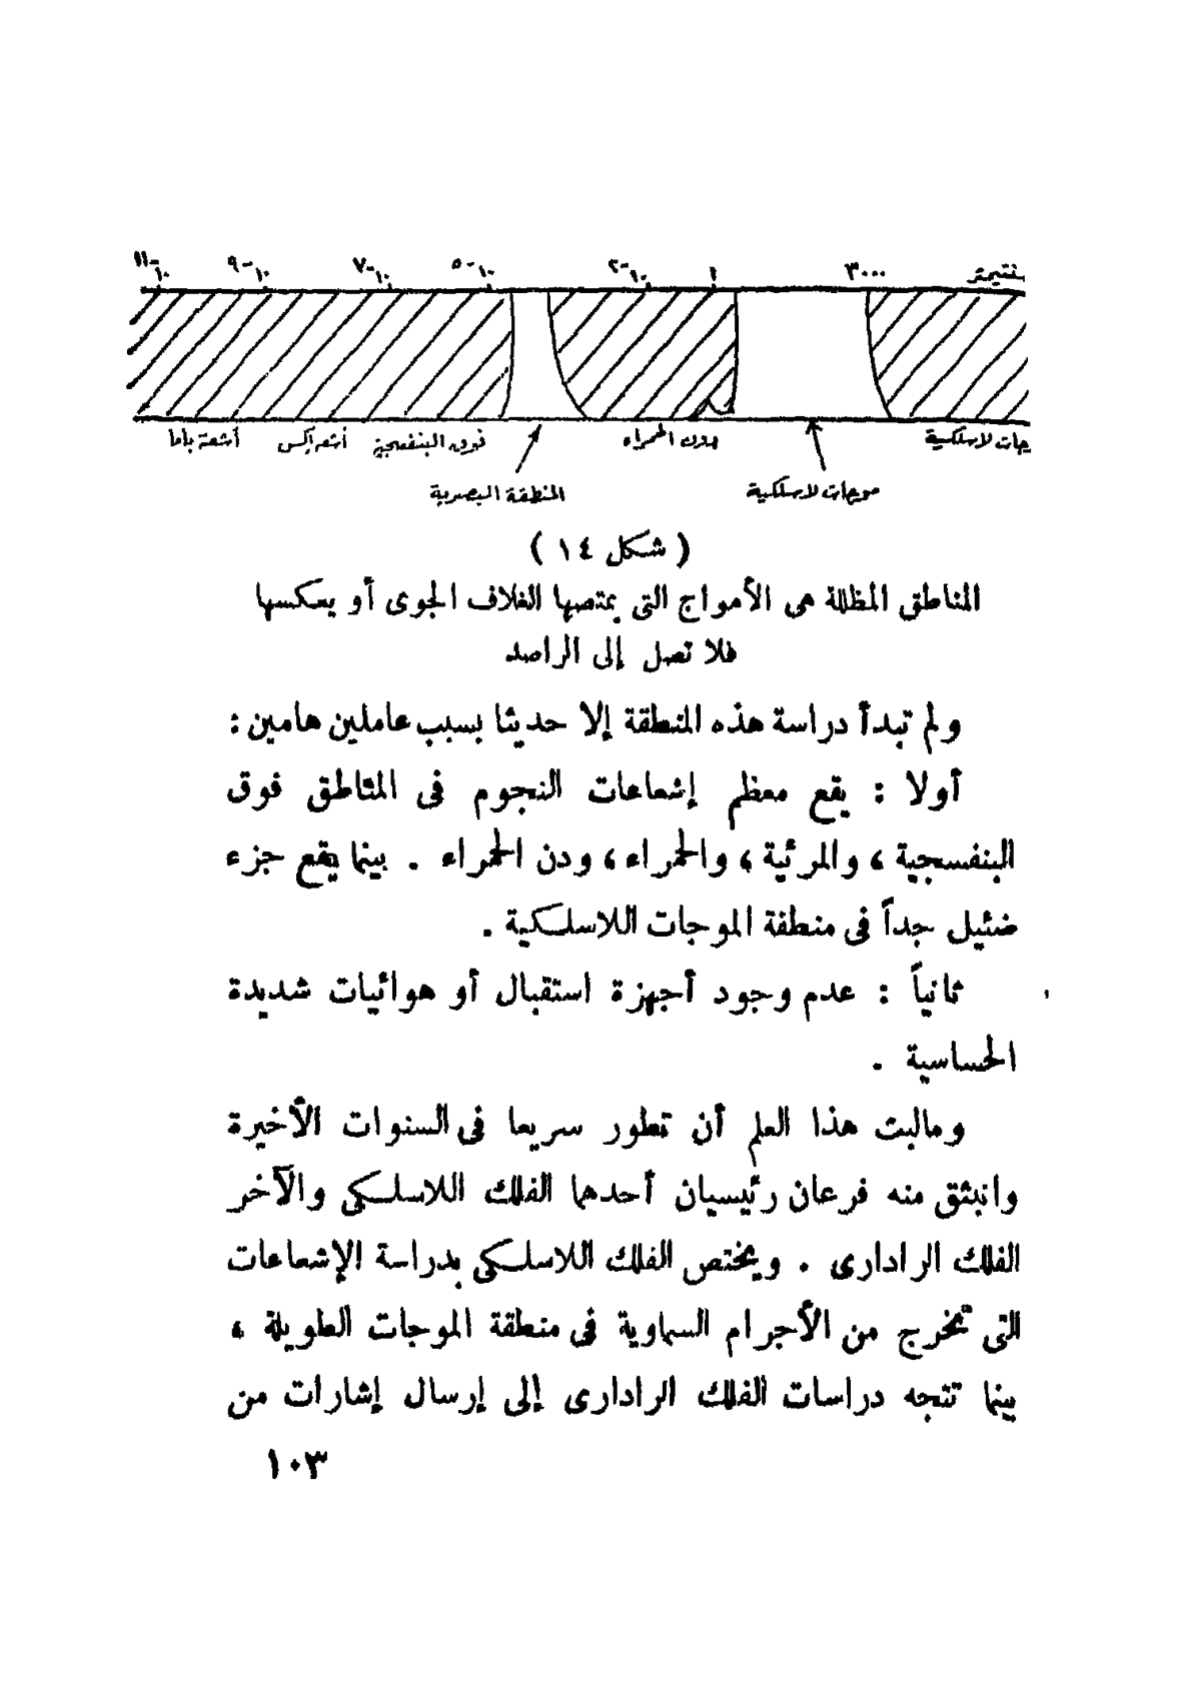 ١١-١٠ ٩-١٠ ٧-١٠ ٥-١٠ ٢-١٠ ١ ٣٠٠٠ سنتيمتر
أشعة جاما أشعة إكس فوق البنفسجية دون الحمراء جات لاسلكية
المنطقة البصرية موجات لاسلكية
( شكل ١٤ )
المناطق المظللة هى الأمواج التى يمتصها الغلاف الجوى أو يعكسها
فلا تصل إلى الراصد
ولم تبدأ دراسة هذه المنطقة إلا حديثا بسبب عاملين هامين :
أولا : يقع معظم إشعاعات النجوم فى المناطق فوق
البنفسجية ، والمرئية ، والحمراء ، ودن الحمراء . بينما يقع جزء
ضئيل جداً فى منطقة الموجات اللاسلكية .
ثانياً : عدم وجود أجهزة استقبال أو هوائيات شديدة
الحساسية .
ومالبث هذا العلم أن تطور سريعا فى السنوات الأخيرة
وانبثق منه فرعان رئيسيان أحدهما الفلك اللاسلكى والآخر
الفلك الرادارى . ويختص الفلك اللاسلكى بدراسة الإشعاعات
التى تخرج من الأجرام السماوية فى منطقة الموجات الطويلة ،
بينما تتجه دراسات الفلك الرادارى إلى إرسال إشارات من
١٠٣